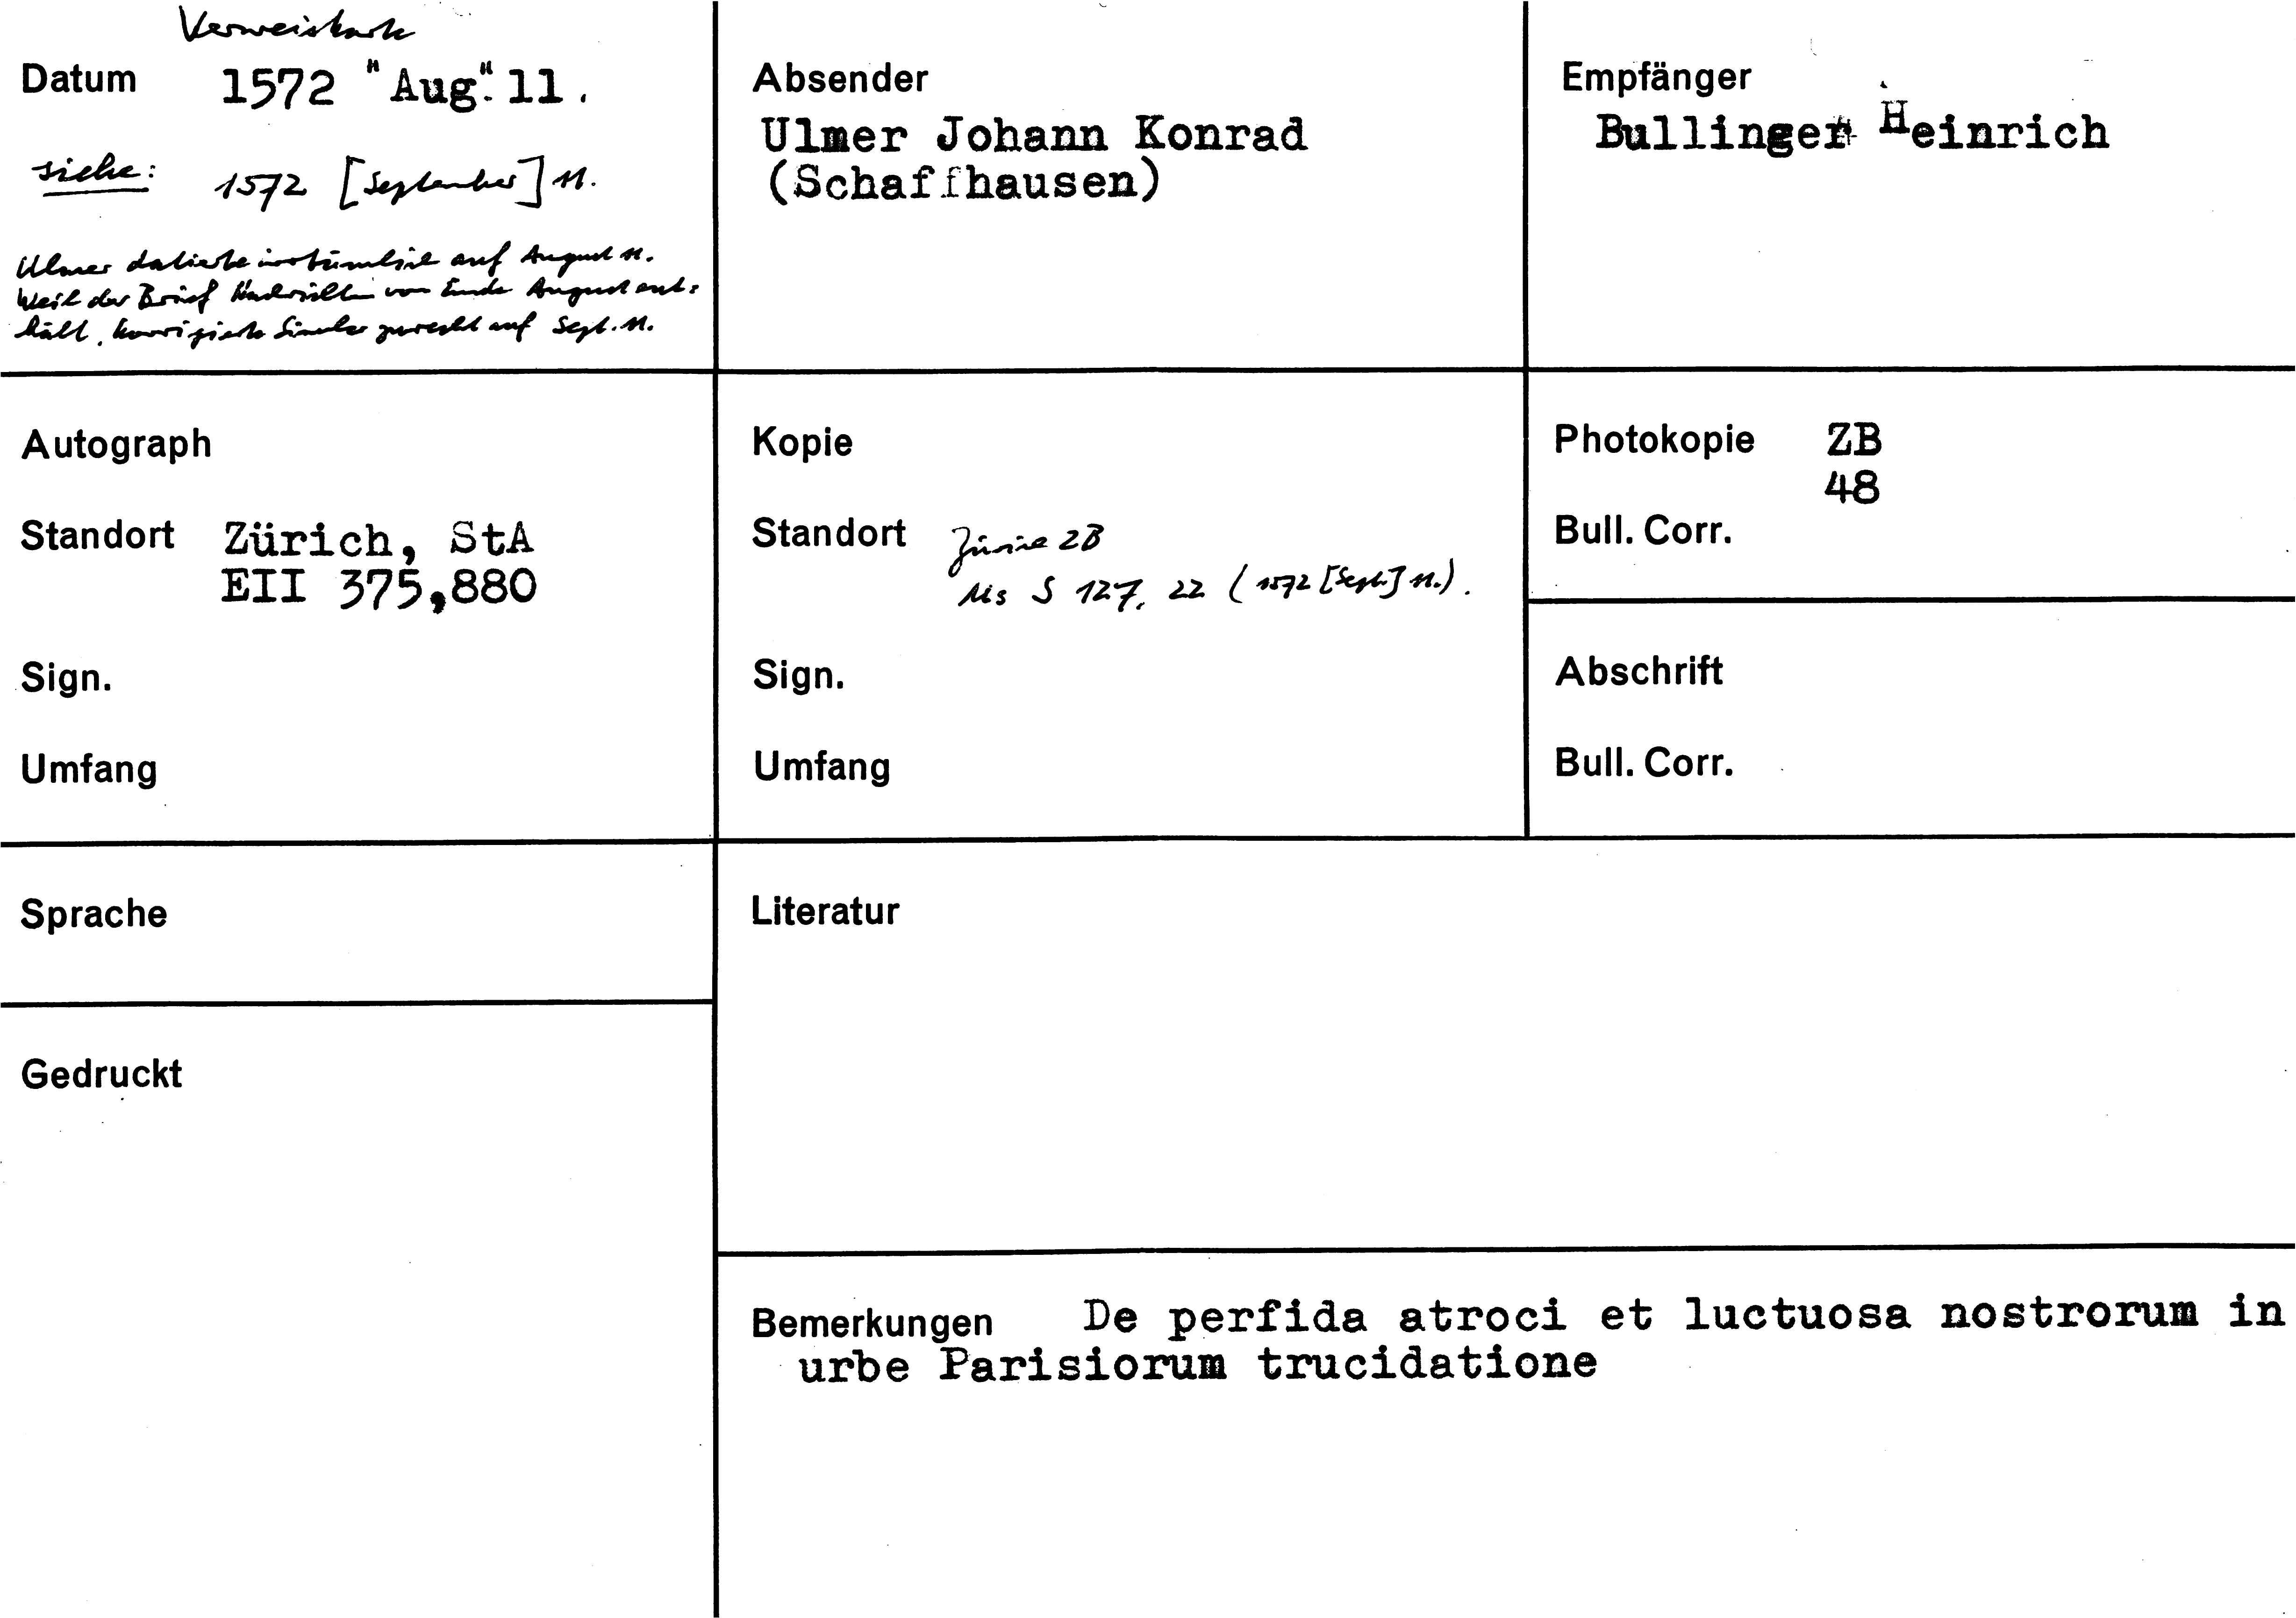 Verweiskarte
Datum 1572 "Aug." 11.
siehe: 1572 [September] 11.
Ulmer datierte irrtümlich auf August 11.
Weil der Brief Nachrichten von Ende August ent-
hält, korrigierte Simler zurecht auf Sept. 11.
Absender
Ulmer Johann Konrad
(Schaffhausen)
Empfänger
Bullinger Heinrich
Autograph
Standort Zürich, StA
EII 375,880
Sign.
Umfang
Kopie
Standort Zürich ZB
Ms S 127, 22 (1572 [Sept.] 11.).
Sign.
Umfang
Photokopie ZB
48
Bull. Corr.
Abschrift
Bull. Corr.
Sprache
Literatur
Gedruckt
Bemerkungen De perfida atroci et luctuosa nostrorum in
urbe Parisiorum trucidatione